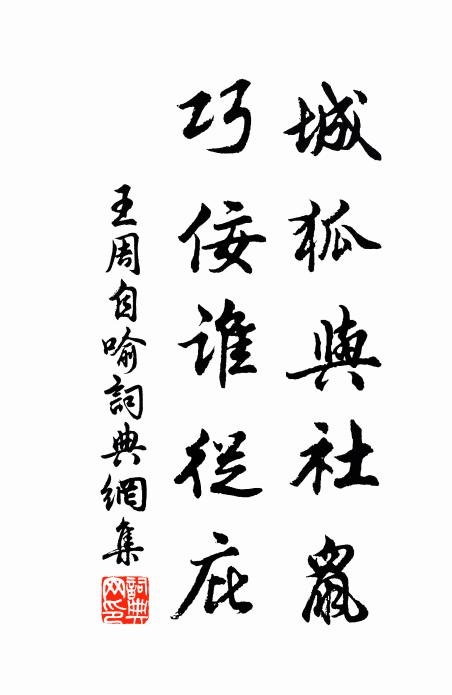 城狐與社鼠
巧佞誰從庇
王周自喻詞典網集
詞典網印